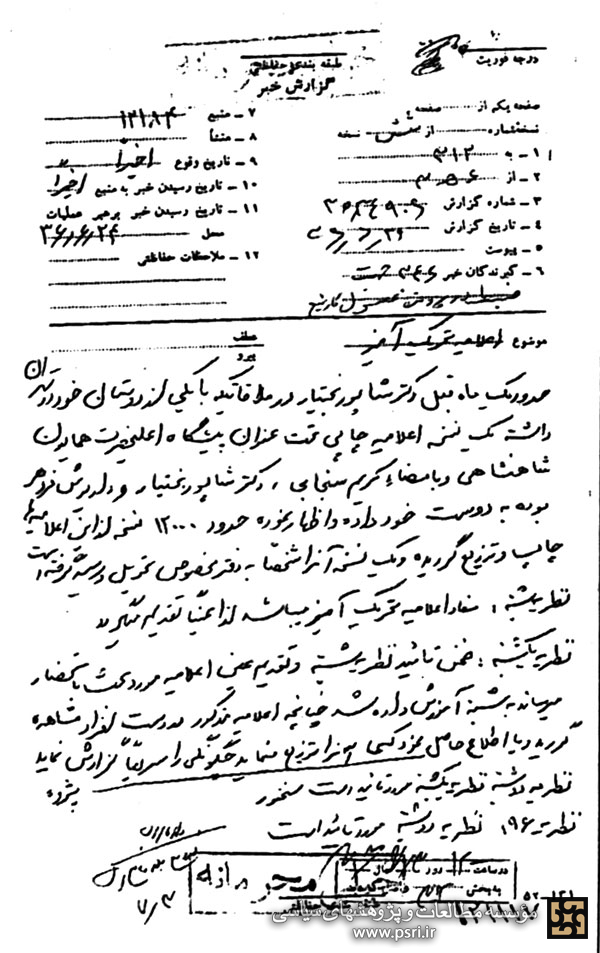 درجه فوریت
طبقه بندی حفاظتی
گزارش خبر
صفحه یکم از صفحه
نسخه شماره از شش نسخه
۱ - به ۳۱۲
۲ - از
۳ - شماره گزارش
۴ - تاریخ گزارش
۵ - پیوست
۶ - گیرندگان خبر
۷ - منبع ۱۲۱۸۴
۸ - منشأ
۹ - تاریخ وقوع اخیرا
۱۰ - تاریخ رسیدن خبر به منبع اخیرا
۱۱ - تاریخ رسیدن خبر برهبر عملیات
محل ۳۶/۶/۲۴
۱۲ - ملاحظات حفاظتی
موضوع اعلامیه تحریک آمیز
عطف
پیرو
حدود یک ماه قبل دکتر شاپور بختیار در ملاقاتیکه با یکی از دوستان خود در تهران
داشته یک نسخه اعلامیه چاپی تحت عنوان پیشگاه اعلیحضرت همایون
شاهنشاهی و بامضاء کریم سنجابی، دکتر شاپور بختیار و داریوش فروهر
بوده به دوست خود داده و اظهار نموده حدود ۱۲۰۰۰ نسخه از این اعلامیه‌ها
چاپ و توزیع گردیده و یک نسخه آنرا شخصاً به دفتر مخصوص تحویل و رسید گرفته است
نظریه شنبه : مفاد اعلامیه تحریک آمیز میباشد لذا عیناً تقدیم میگردد
نظریه یکشنبه : ضمن تائید نظریه شنبه و تقدیم عین اعلامیه مورد بحث باستحضار
میرساند به شنبه آموزش داده شد چنانچه اعلامیه مذکور در دست افراد مشاهده
گردید و یا اطلاع حاصل نمود کسی آنرا توزیع مینماید چگونگی را سریعاً گزارش نماید
نظریه دوشنبه نظریه یکشنبه مورد تائید است سنحور
نظریه ۱۹۶ نظریه دوشنبه مورد تائید است
۷/۳
در ساعت روز
به بخش
موسسه مطالعات و پژوهشهای سیاسی
www.psri.ir